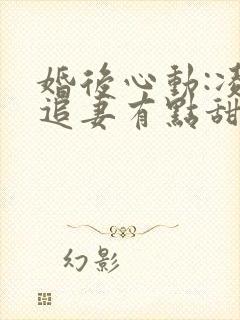 婚後心動:凌
追妻有點甜
幻影